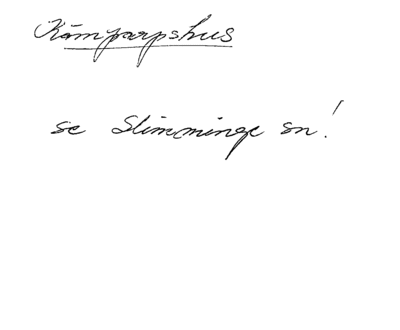 Kämparpshus
se Slimminge sn!